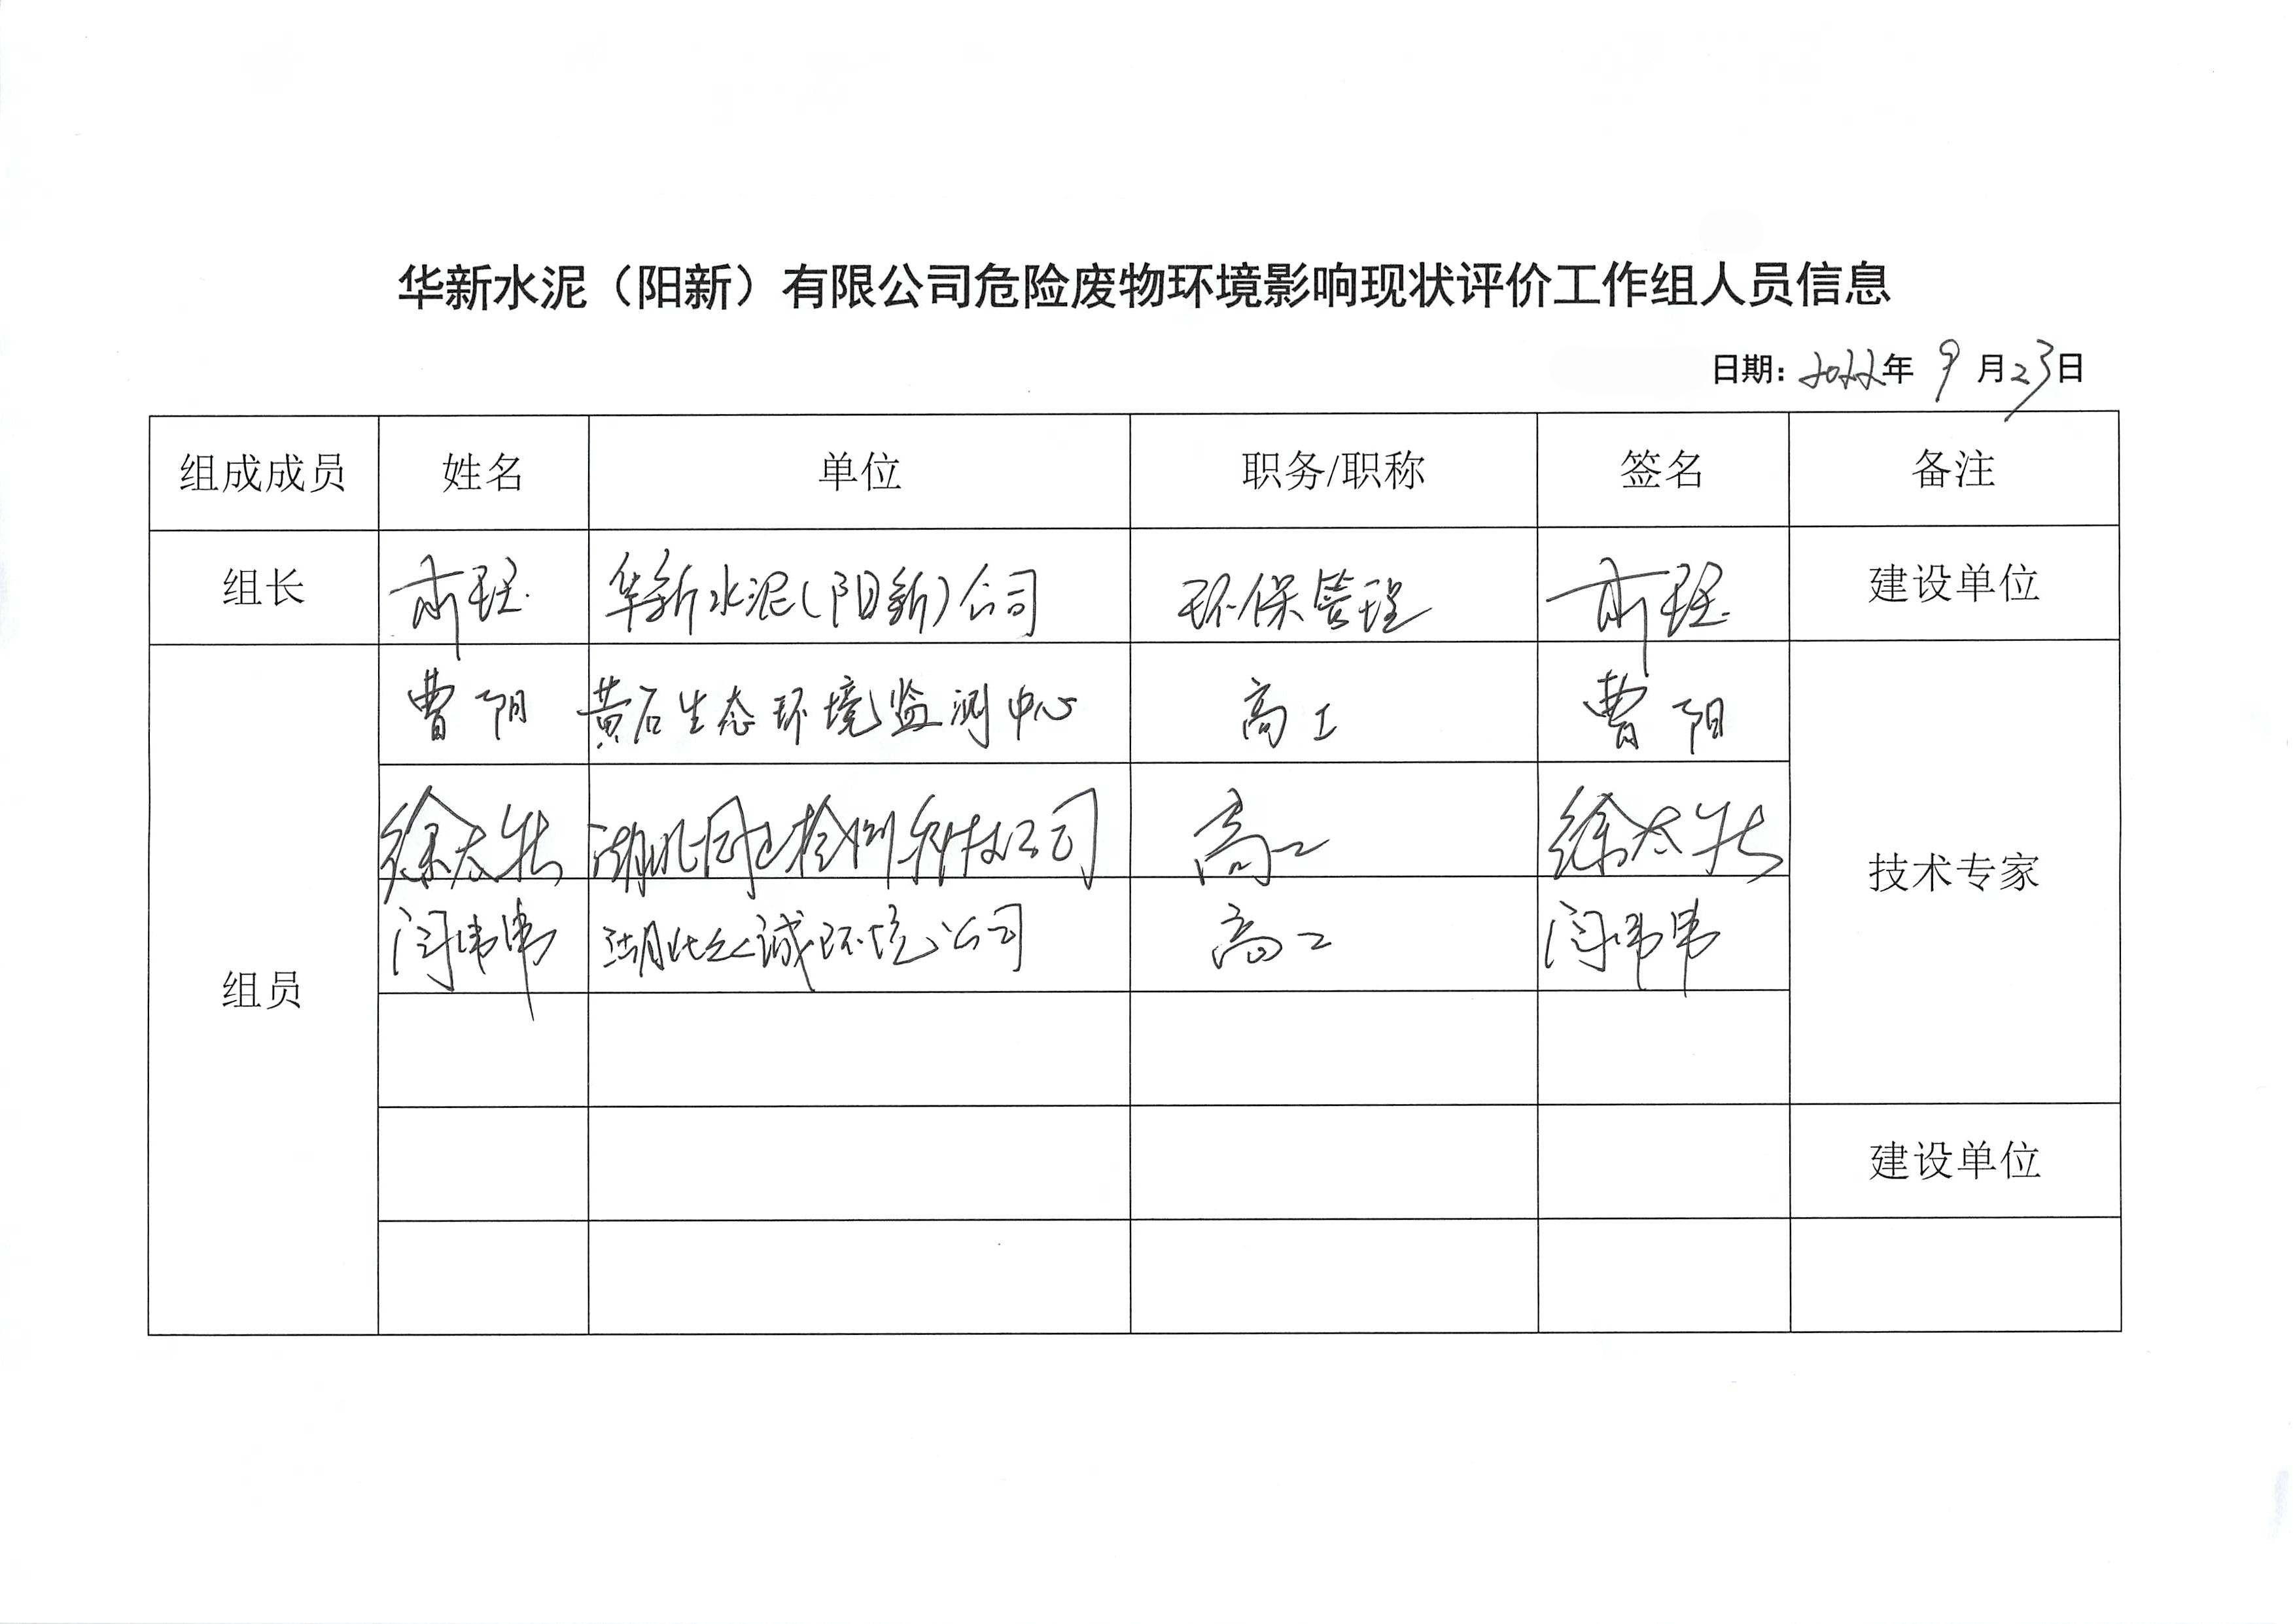 华新水泥（阳新）有限公司危险废物环境影响现状评价工作组人员信息
日期：2022年 9 月23日
组成成员 姓名 单位 职务/职称 签名 备注
组长 华新水泥(阳新)公司 环保管理 建设单位
曹阳 黄石生态环境监测中心 高工 曹阳
徐太 湖北 检测科技公司 高工 徐太
闫伟伟 湖北 诚环境公司 高工 闫伟伟
技术专家
组员
建设单位